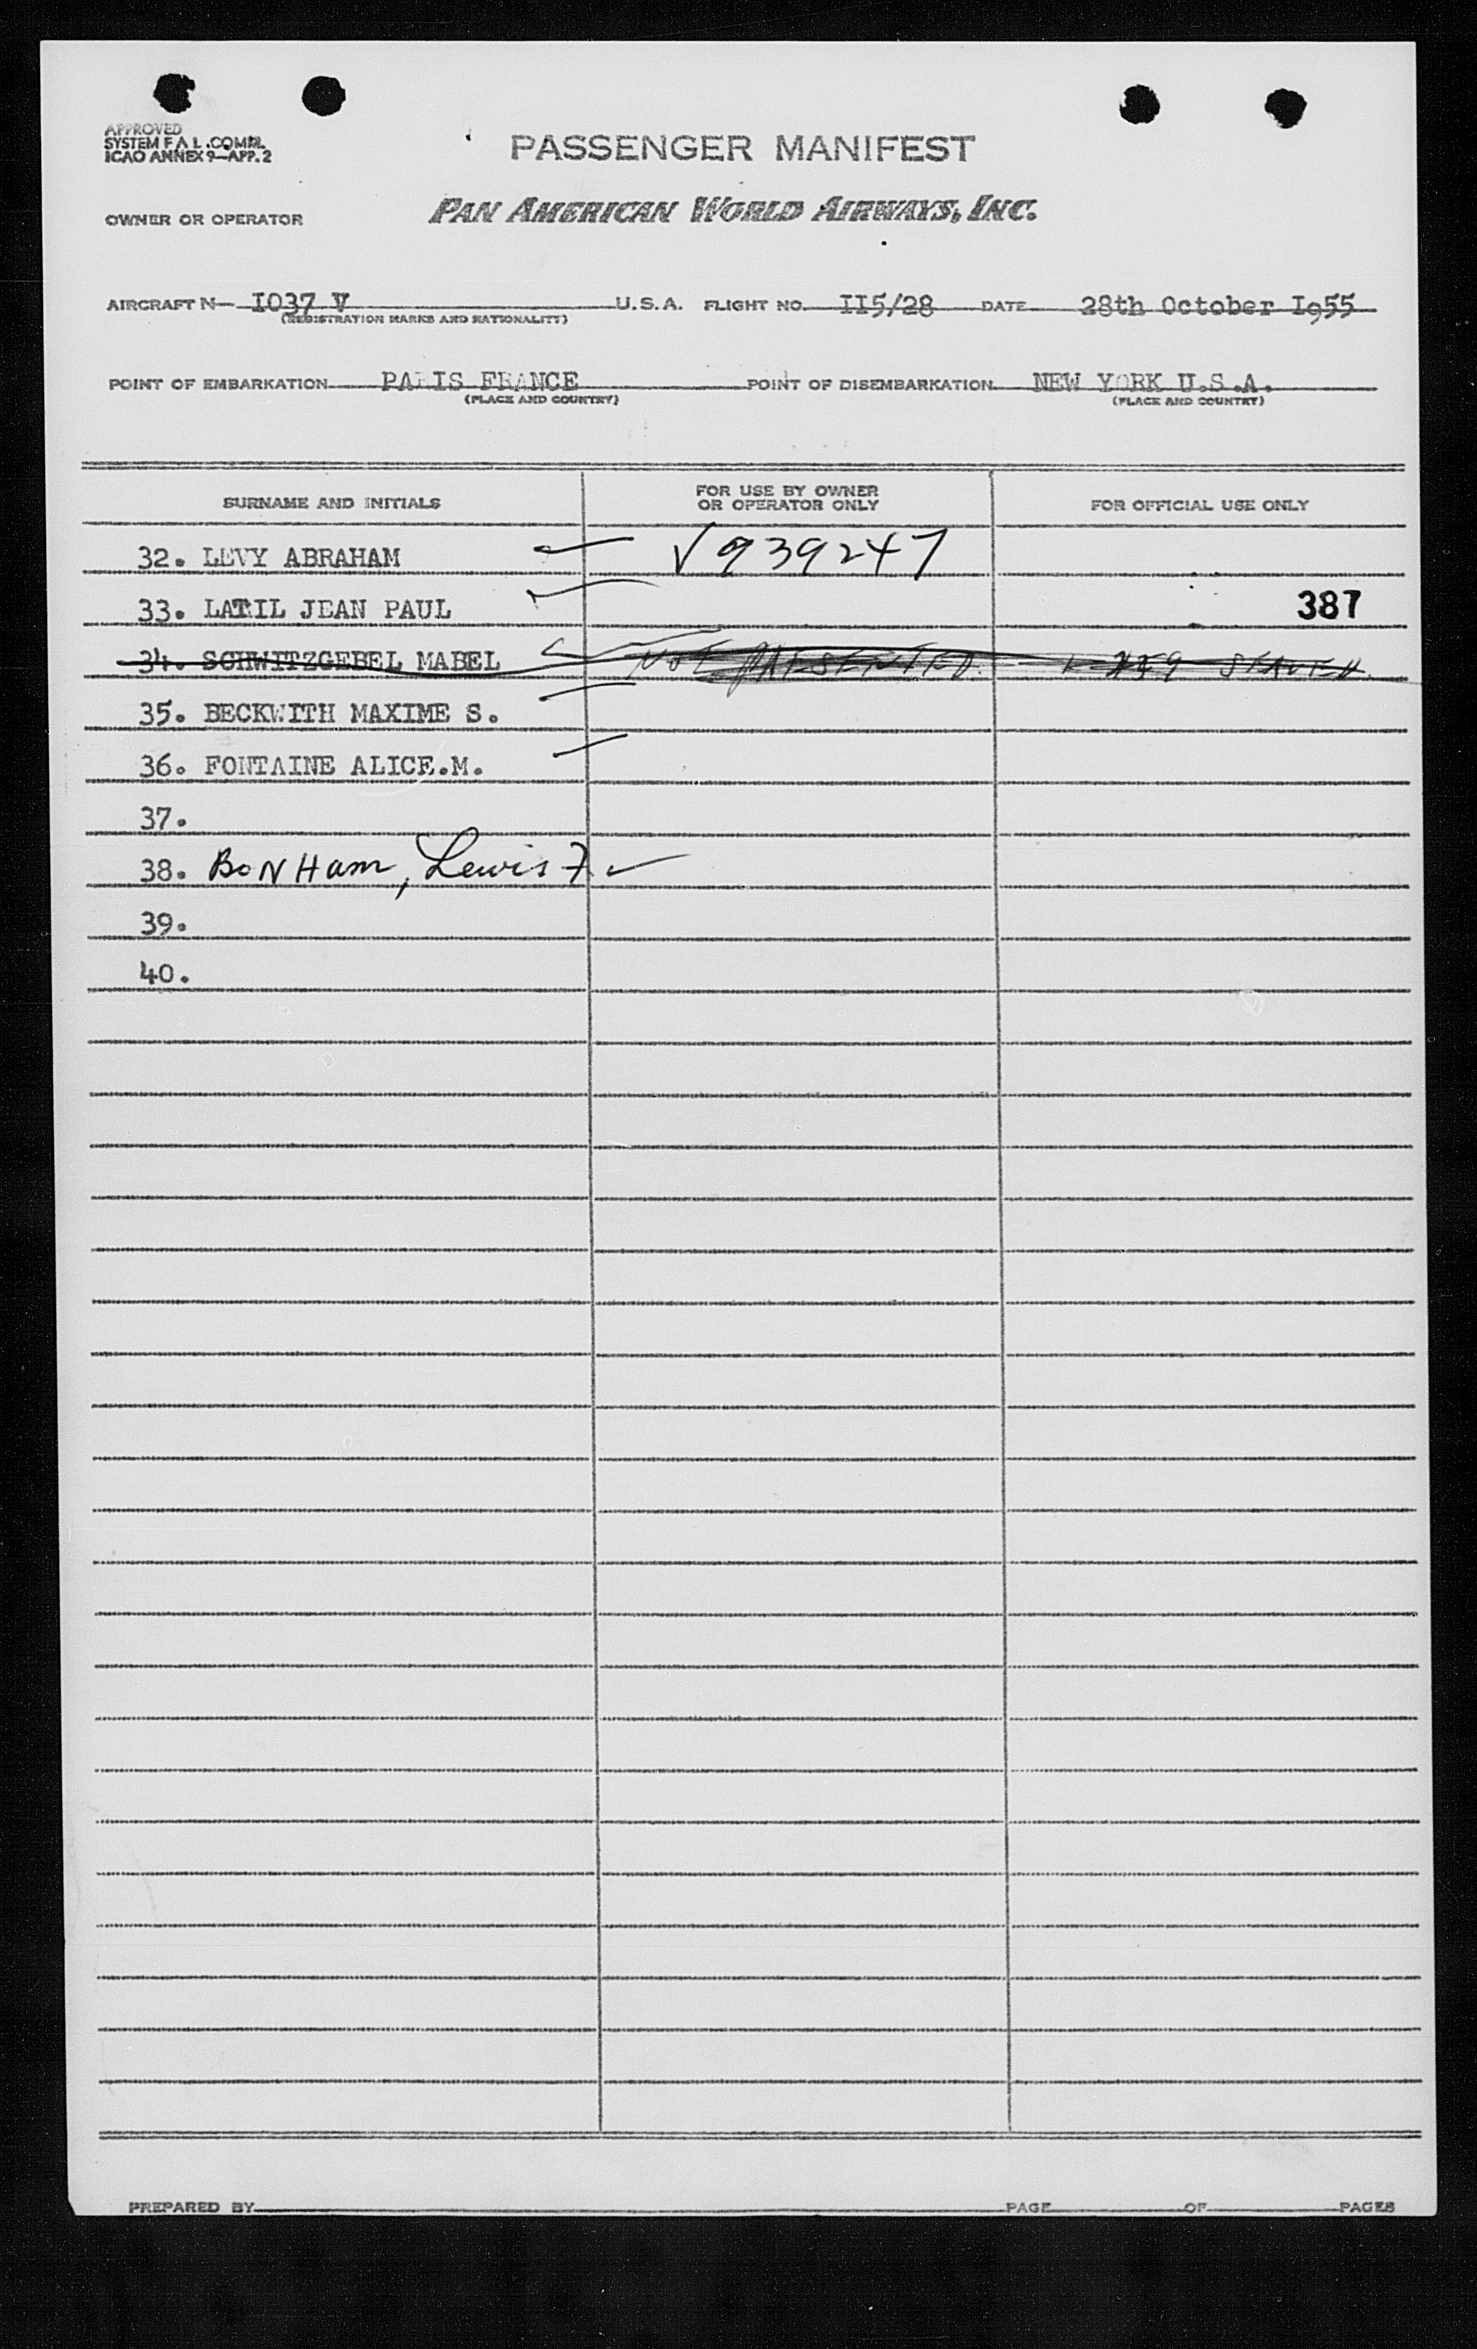 APPROVED
SYSTEM F A L .COMPL.
ICAO ANNEX 9—APP. 2
PASSENGER MANIFEST
OWNER OR OPERATOR PAN AMERICAN WORLD AIRWAYS, INC.
AIRCRAFT N— I037 V U.S.A. FLIGHT NO. II5/28 DATE 28th October I955
(REGISTRATION MARKS AND NATIONALITY)
POINT OF EMBARKATION PARIS FRANCE POINT OF DISEMBARKATION NEW YORK U.S.A.
(PLACE AND COUNTRY) (PLACE AND COUNTRY)
SURNAME AND INITIALS FOR USE BY OWNER OR OPERATOR ONLY FOR OFFICIAL USE ONLY
32. LEVY ABRAHAM √ 939247
33. LATIL JEAN PAUL 387
34. SCHWITZGEBEL MABEL NOT PRESENTED
35. BECKWITH MAXIME S.
36. FONTAINE ALICE.M.
37.
38. BoNHam, Lewis F
39.
40.
PREPARED BY PAGE OF PAGES